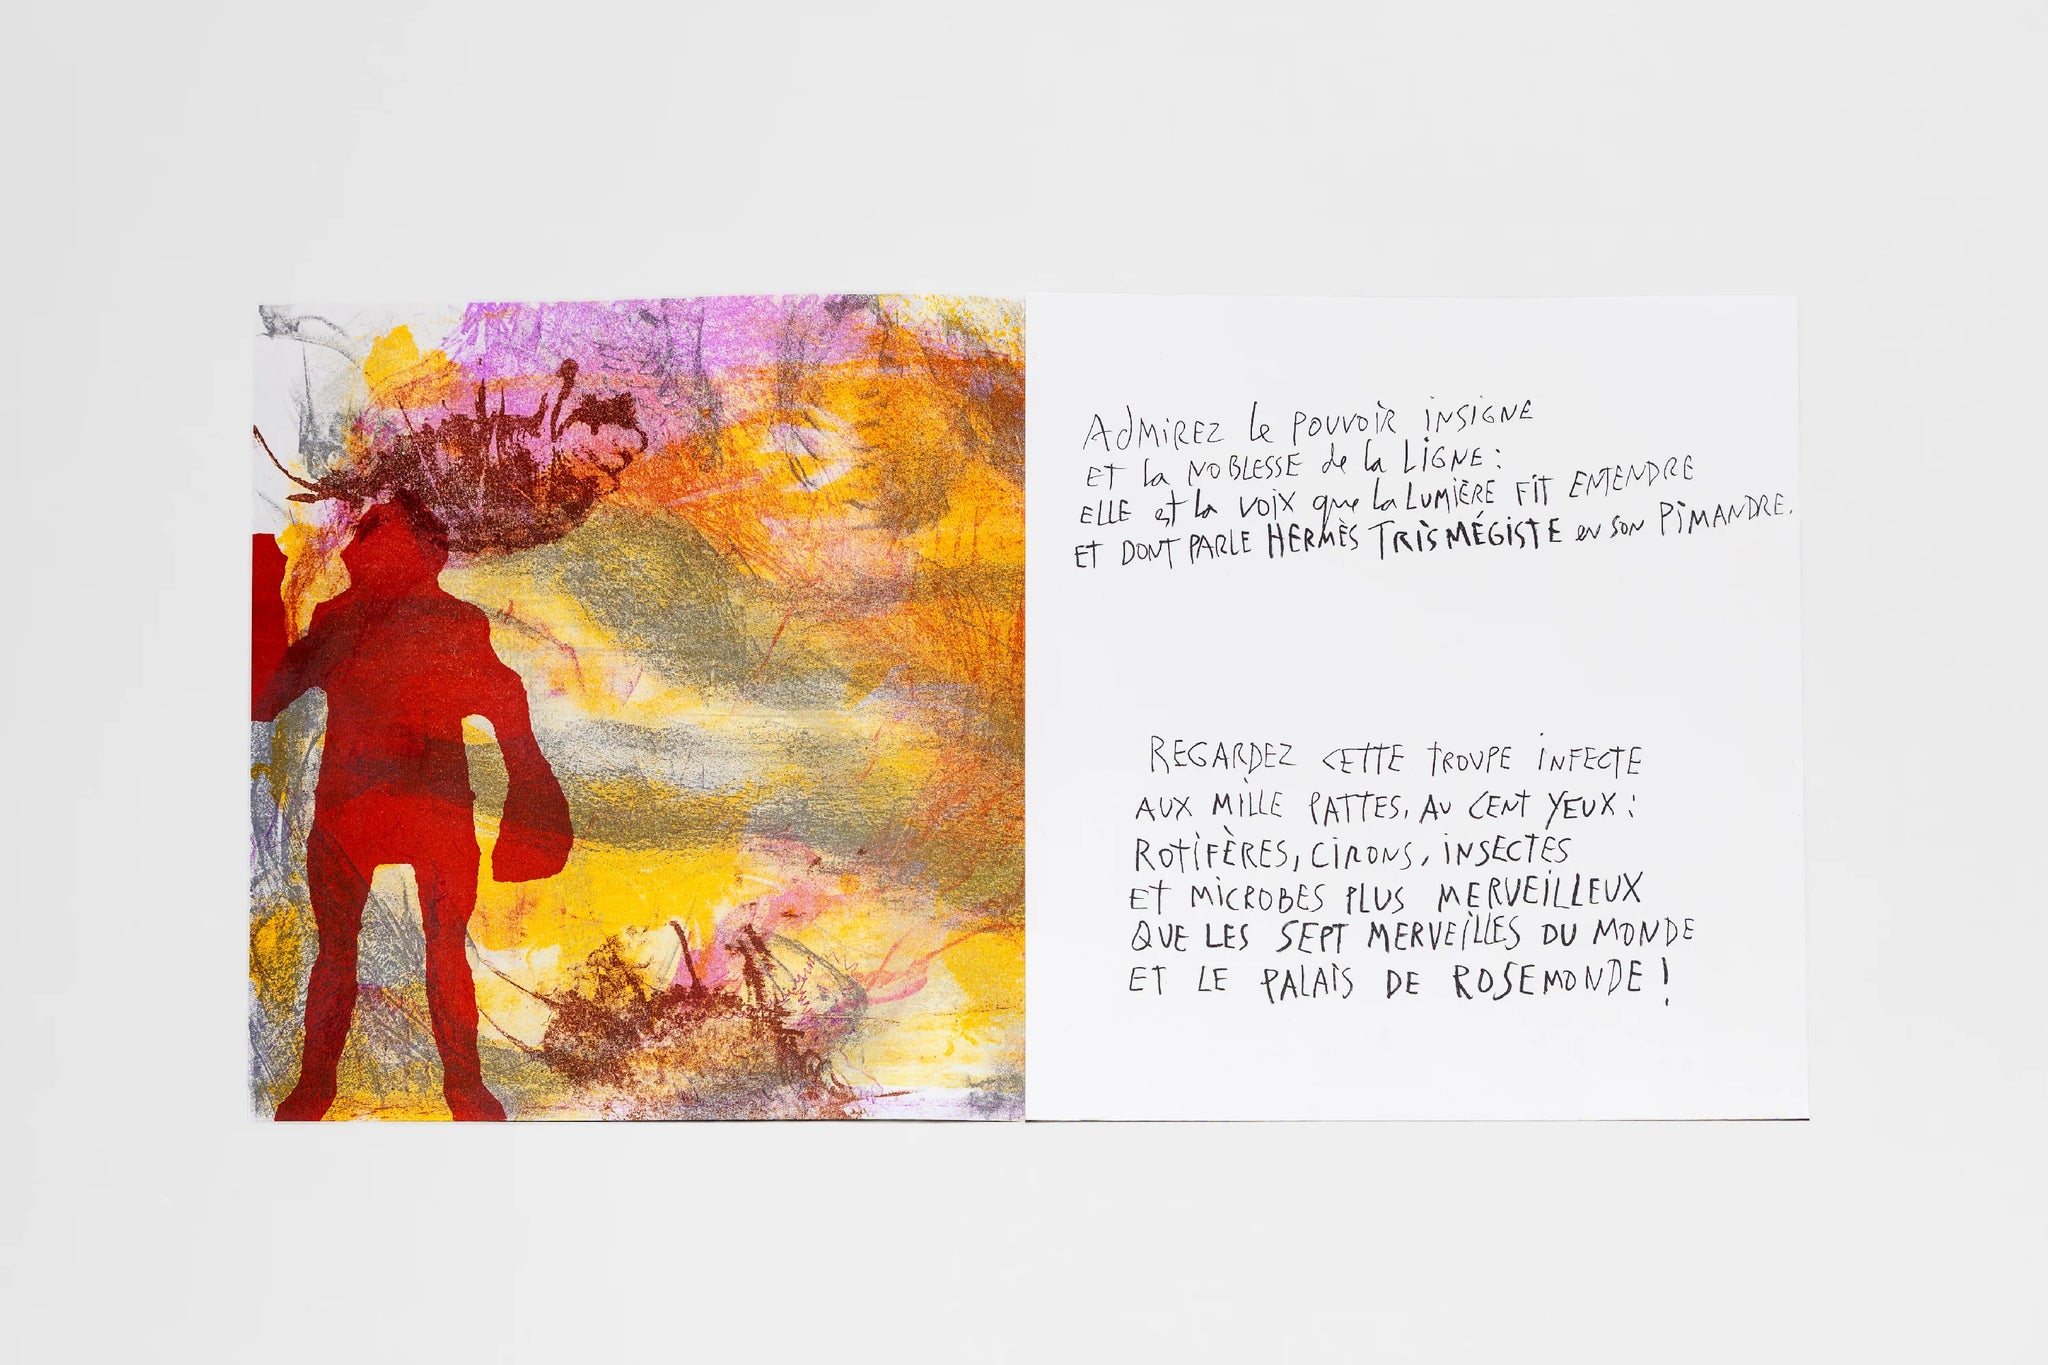 ADMIREZ le POUVOIR INSIGNE
ET la NOBLESSE de la LIGNE :
ELLE est la VOIX que la LUMIÈRE FIT ENTENDRE
ET DONT PARLE HERMÈS TRISMÉGISTE en SON PIMANDRE.
REGARDEZ CETTE TROUPE INFECTE
AUX MILLE PATTES, AU CENT YEUX :
ROTIFÈRES, CIRONS, INSECTES
ET MICROBES PLUS MERVEILLEUX
QUE LES SEPT MERVEILLES DU MONDE
ET LE PALAIS DE ROSEMONDE !